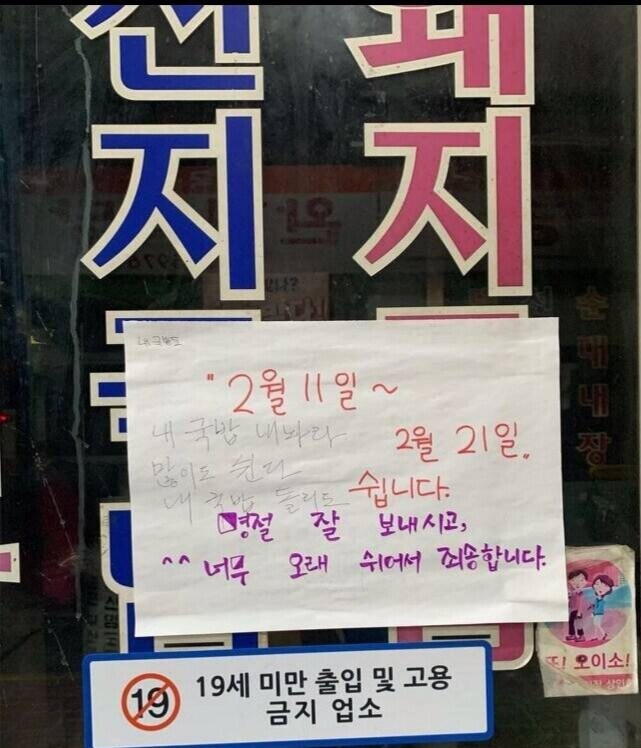 돼지
순대내장
"2월 11일 ~
2월 21일"
쉽니다.
명절 잘 보내시고,
^^ 너무 오래 쉬어서 죄송합니다.
내 국밥 내놔라
많이도 쉰다
내 국밥 돌리도
19
19세 미만 출입 및 고용
금지 업소
또! 오이소!